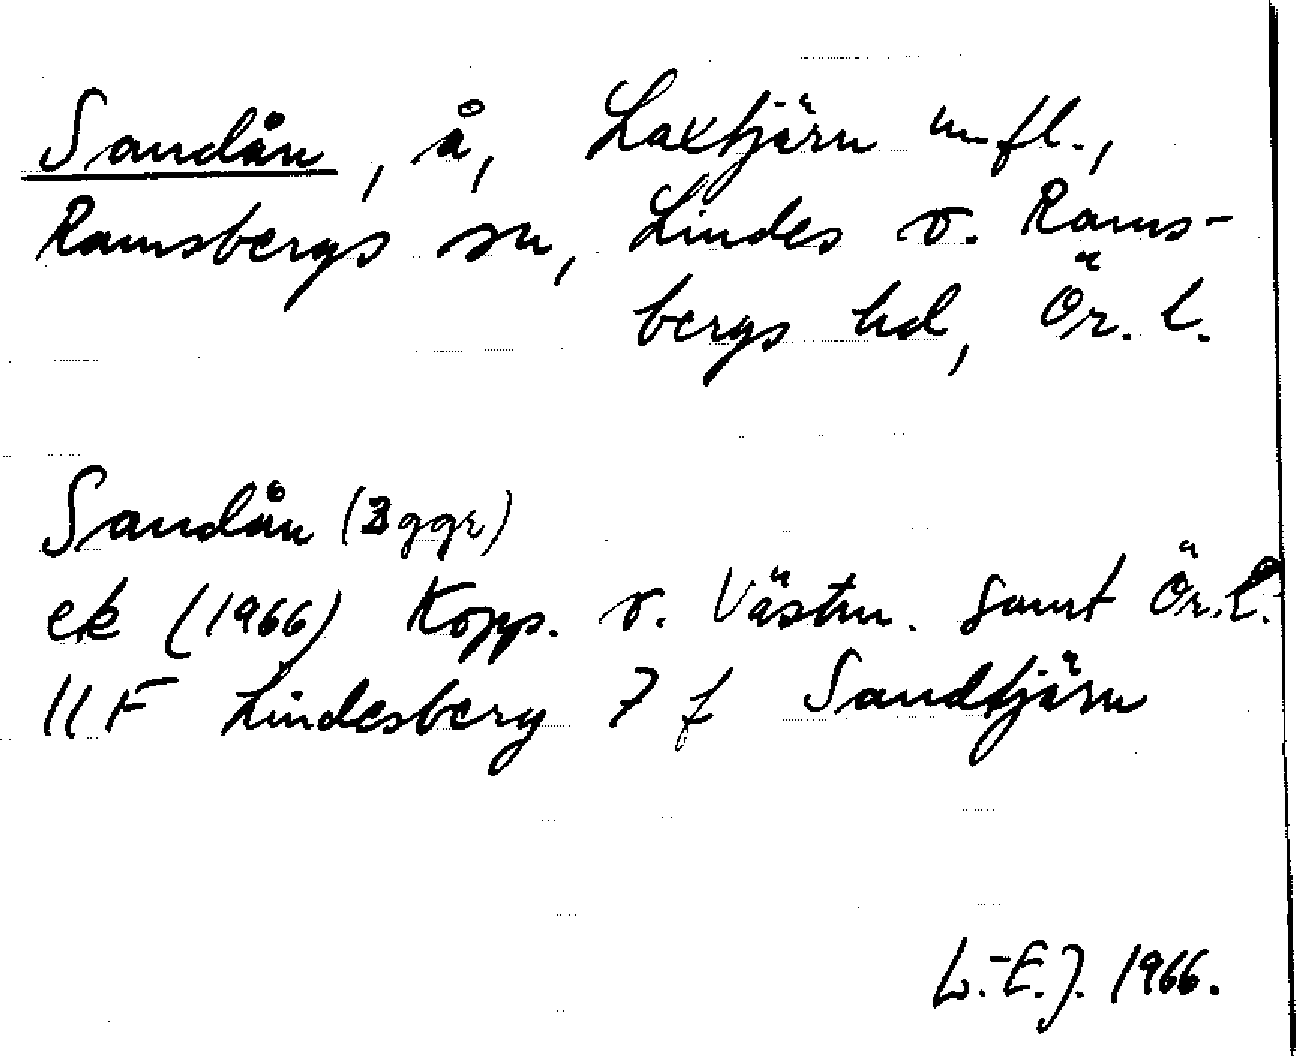 Sandån, å, Laxtjärn m fl.,
Ramsbergs sn, Lindes o. Rams-
bergs hd, Ör. l.
Sandån (3 ggr)
ek (1966) Kopp. o. Västm. samt Ör. l.
11F Lindesberg 7 f Sandtjärn
L.-E.J. 1966.